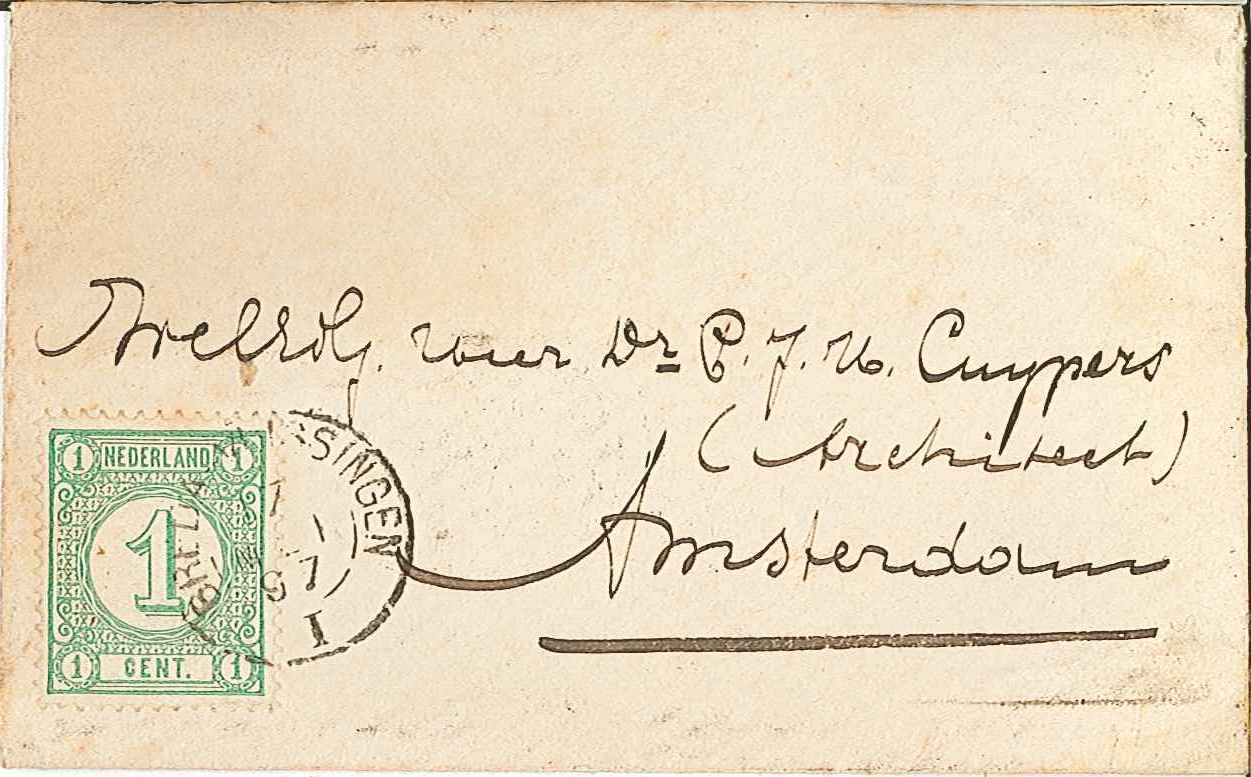 WelEd. Heer Dr P. J. H. Cuypers
(Architect)
Amsterdam
1 NEDERLAND 1
1
1 CENT. 1
BRESKENS